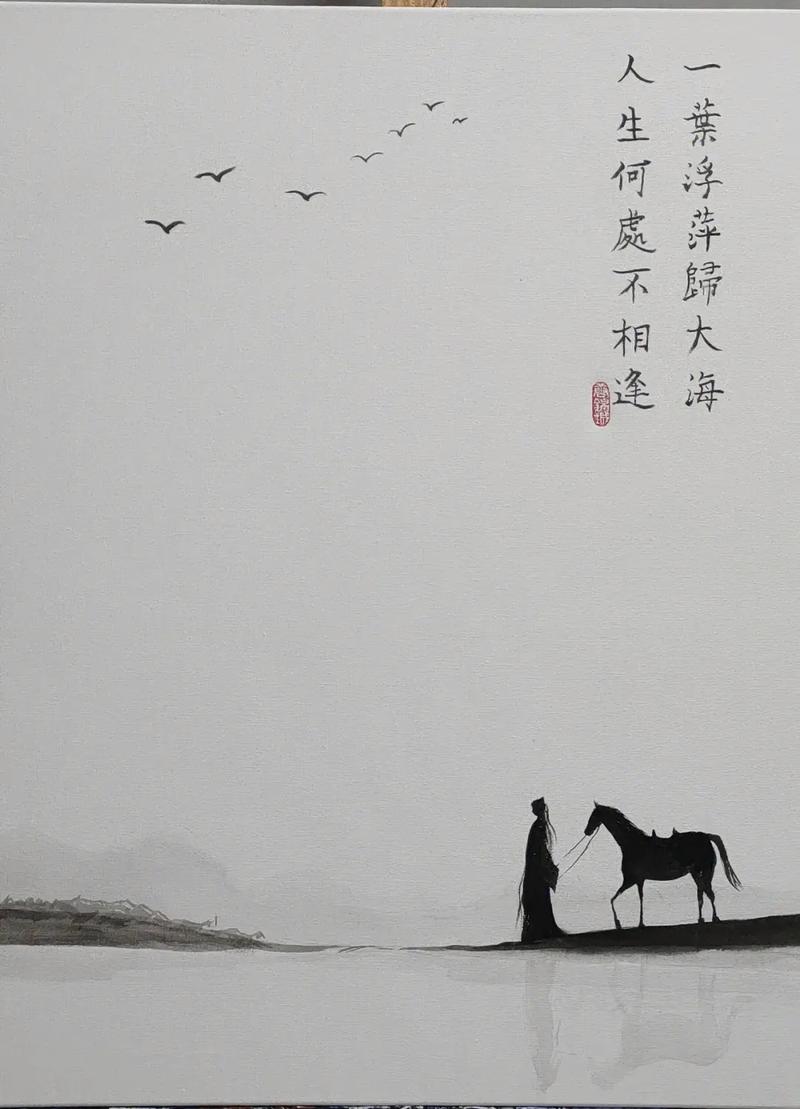 一葉浮萍歸大海
人生何處不相逢